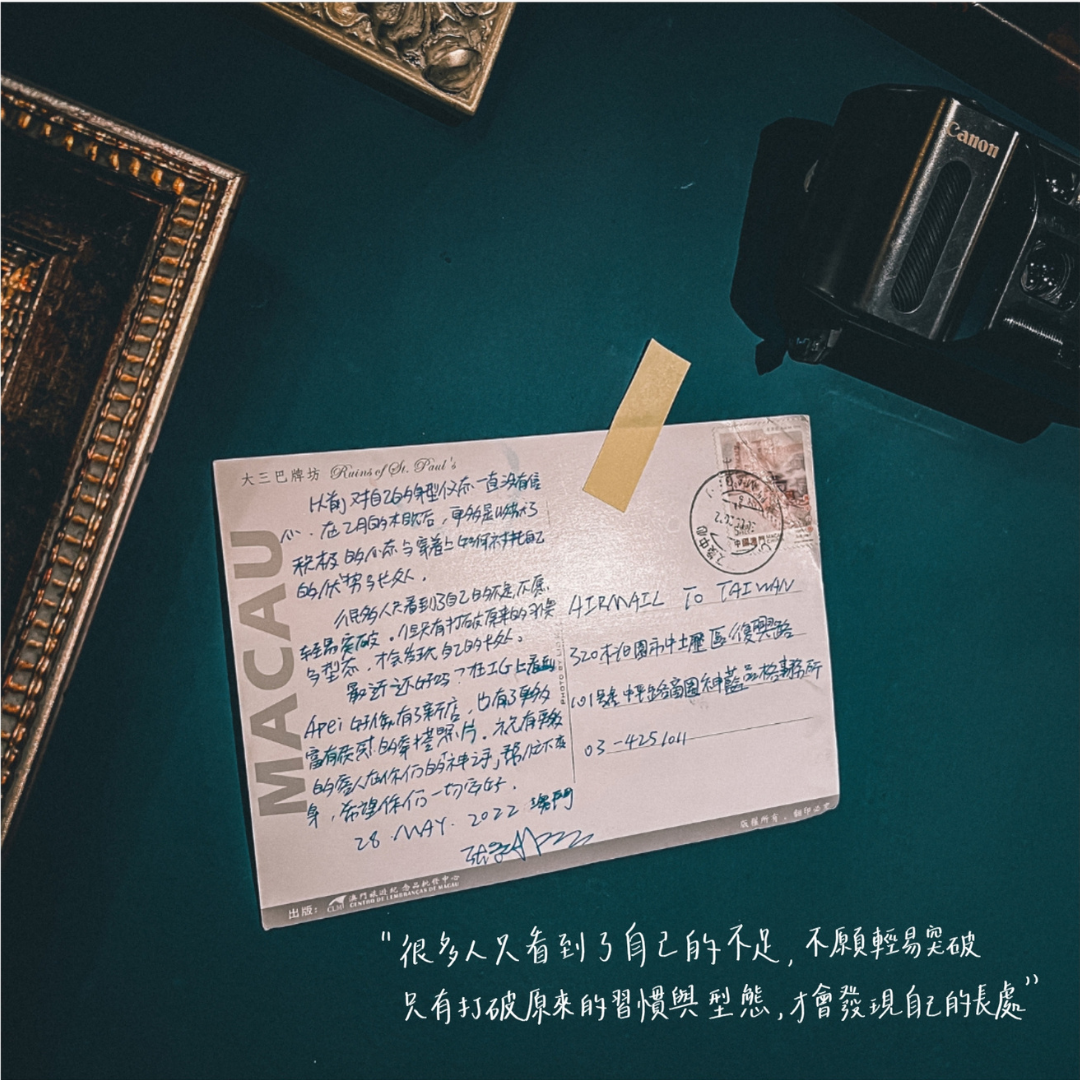 Canon
大三巴牌坊 Ruins of St. Paul's
MACAU
以前对自己的身型仪态一直没有信
心。在2月的木目欠后，更多是以
积极的心态与穿着上如何衬托自己
的优势与长处。
很多人只看到了自己的不足，不愿
轻易突破。但只有打破原来的习惯
与型态，才会发现自己的长处。
最近还好吗？在IG上看到
Apei 好像有了新店，也有了更多
富有质感的穿搭照片。祝有更多
的客人在你们的「神手」帮忙下变
身，希望你们一切安好。
28 MAY. 2022 澳門
PHOTO BY
中國澳門
AIRMAIL TO TAIWAN
320桃園市中壢區復興路
101號 紳藍品格事務所
03-4251011
版權所有．翻印必究
出版：
CLM
澳門旅遊紀念品批發中心
CENTRO DE LEMBRANÇAS DE MACAU
"很多人只看到了自己的不足，不願輕易突破
只有打破原來的習慣與型態，才會發現自己的長處"